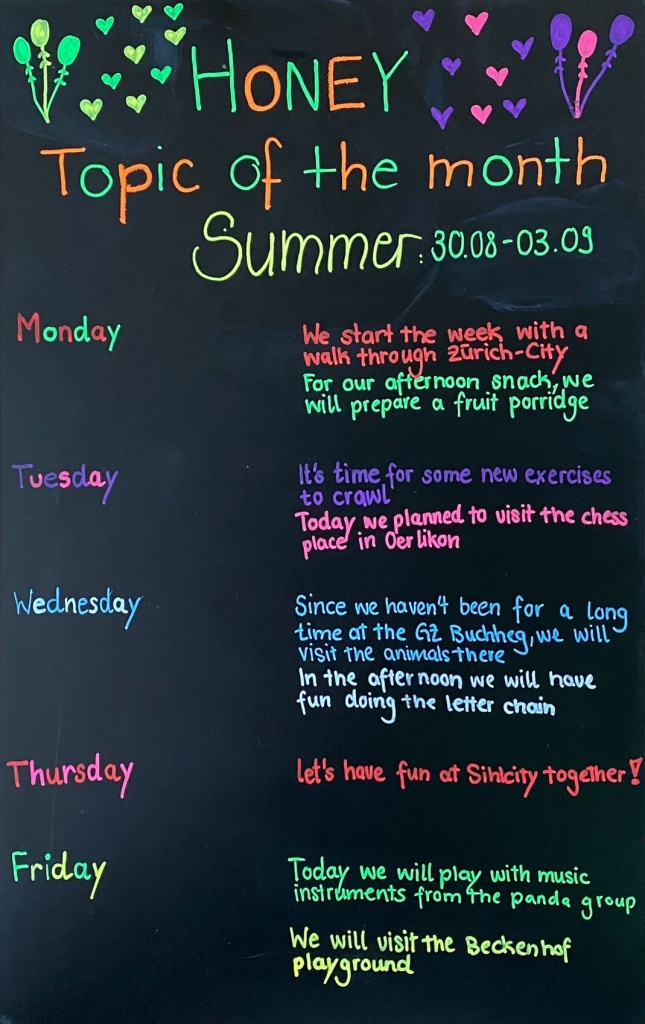 HONEY
Topic of the month
Summer: 30.08-03.09
Monday
We start the week with a
walk through Zürich-City
For our afternoon snack, we
will prepare a fruit porridge
Tuesday
It's time for some new exercises
to crawl
Today we planned to visit the chess
place in Oerlikon
Wednesday
Since we haven't been for a long
time at the GZ Buchheg, we will
visit the animals there
In the afternoon we will have
fun doing the letter chain
Thursday
let's have fun at Sihlcity together!
Friday
Today we will play with music
instruments from the panda group
We will visit the Beckenhof
playground